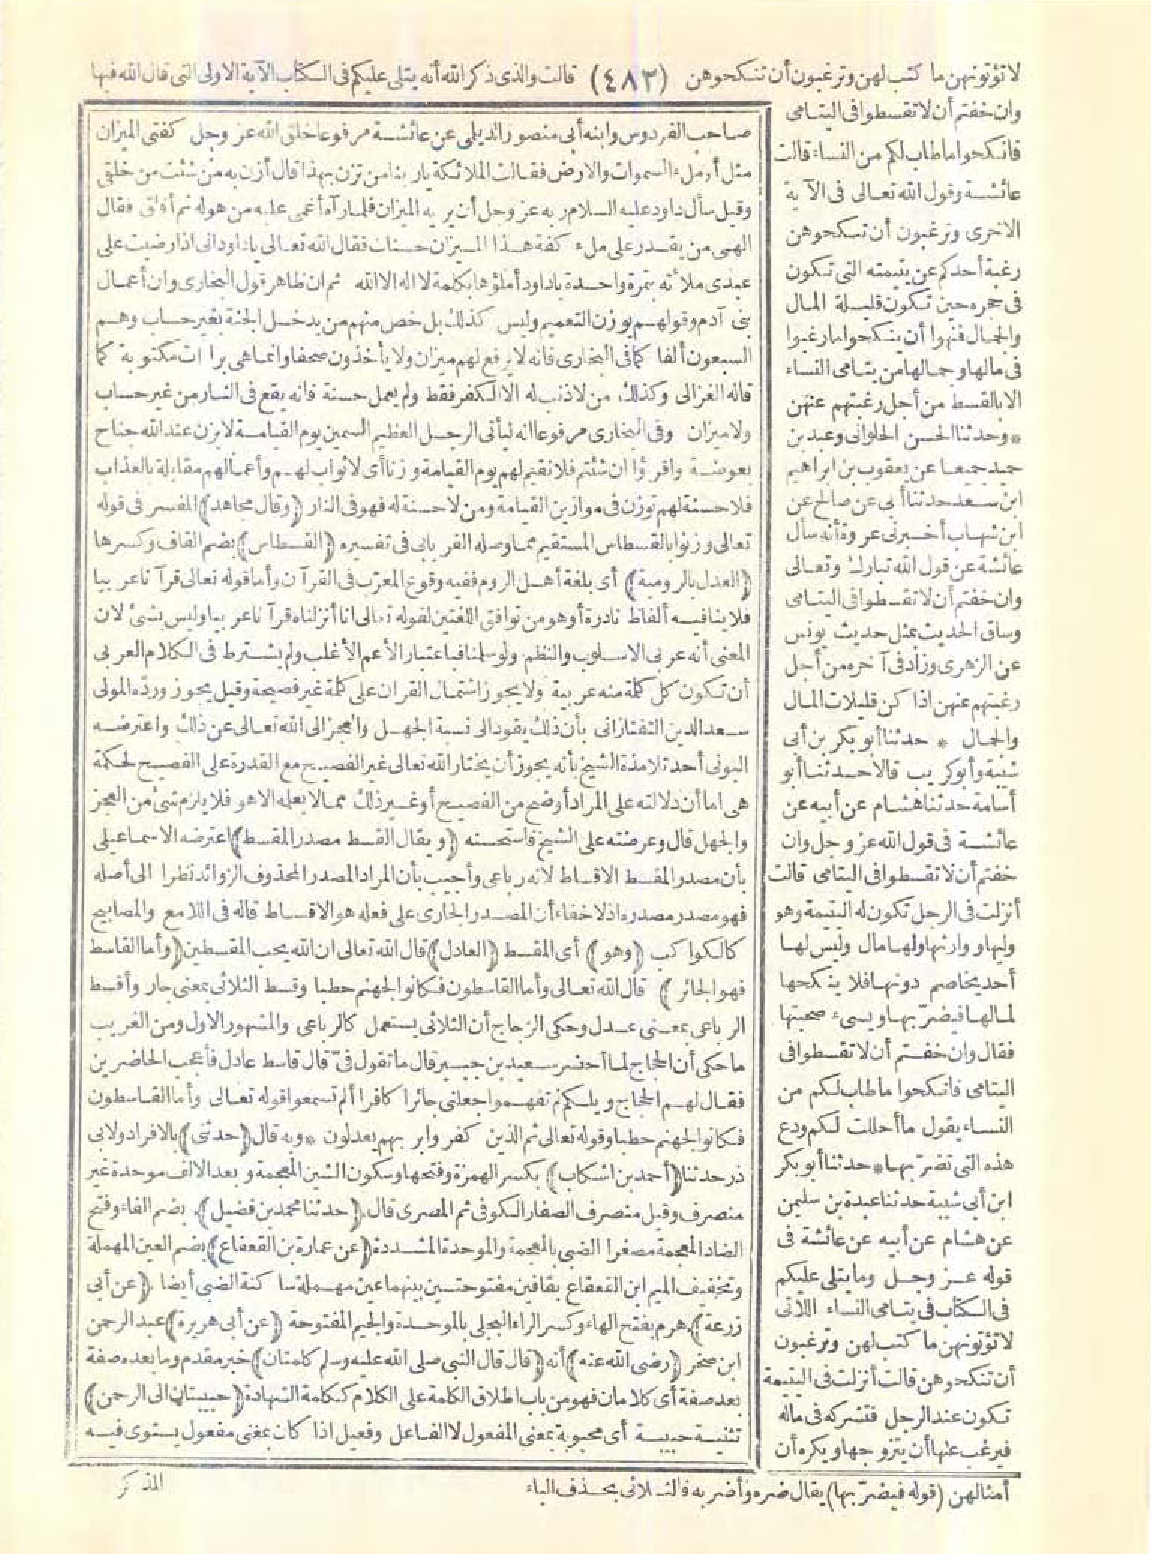 لا تؤتونهن ما كتب لهن وترغبون أن تنكحوهن (٤٨٣) قالت والذى ذكر الله أنه يتلى عليكم فى الكتاب الآية الاولى التى قال الله فيها
وان خفتم أن لا تقسطوا فى اليتامى
فانكحوا ما طاب لكم من النساء قالت
عائشة وقول الله تعالى فى الآية
الاخرى وترغبون أن تنكحوهن
رغبة أحدكم عن يتيمته التى تكون
فى حجره حين تكون قليلة المال
والجمال فنهوا أن ينكحوا ما رغبوا
فى مالها وجمالها من يتامى النساء
الا بالقسط من أجل رغبتهم عنهن
* وحدثنا الحسن الحلوانى وعبد بن
حميد جميعا عن يعقوب بن ابراهيم
ابن سعد حدثنا أبى عن صالح عن
ابن شهاب أخبرنى عروة أنه سأل
عائشة عن قول الله تبارك وتعالى
وان خفتم أن لا تقسطوا فى اليتامى
وساق الحديث بمثل حديث يونس
عن الزهرى وزاد فى آخره من أجل
رغبتهم عنهن اذا كن قليلات المال
والجمال * حدثنا أبو بكر بن أبى
شيبة وأبو كريب قالا حدثنا أبو
أسامة حدثنا هشام عن أبيه عن
عائشة فى قول الله عز وجل وان
خفتم أن لا تقسطوا فى اليتامى قالت
أنزلت فى الرجل تكون له اليتيمة وهو
وليها ووارثها ولها مال وليس لها
أحد يخاصم دونها فلا ينكحها
لمالها فيضربها ويسىء صحبتها
فقال وان خفتم أن لا تقسطوا فى
اليتامى فانكحوا ما طاب لكم من
النساء يقول ما أحللت لكم ودع
هذه التى تضربها * حدثنا أبو بكر
ابن أبى شيبة حدثنا عبدة بن سليمن
عن هشام عن أبيه عن عائشة فى
قوله عز وجل وما يتلى عليكم
فى الكتاب فى يتامى النساء اللاتى
لا تؤتونهن ما كتب لهن وترغبون
أن تنكحوهن قالت أنزلت فى اليتيمة
تكون عند الرجل فتشركه فى ماله
فيرغب عنها أن يتزوجها ويكره أن
صاحب الفردوس وابنه أبى منصور الديلى عن عائشة مرفوعا خلق الله عز وجل كفتى الميزان
مثل أو ملء السموات والارض فقالت الملائكة يا ربنا من تزن بهذا قال أزن به من شئت من خلقى
وقيل سأل داود عليه السلام ربه عز وجل أن يريه الميزان فلما رآه أغمى عليه من هوله ثم أفاق فقال
الهى من يقدر على ملء كفة هذا الميزان حسنات فقال الله تعالى يا داود انى اذا رضيت على
عبدى ملأته بتمرة واحدة يا داود أملؤها بكلمة لا اله الا الله ثم ان ظاهر قول البخارى وان أعمال
بنى آدم وقولهم يوزن التعميم وليس كذلك بل خص منهم من يدخل الجنة بغير حساب وهم
السبعون ألفا كما فى البخارى فانه لا يرفع لهم ميزان ولا يأخذون صحفا وانما هى براآت مكتوبة كما
قاله الغزالى وكذلك من لا ذنب له الا الكفر فقط ولم يعمل حسنة فانه يقع فى النار من غير حساب
ولا ميزان وفى البخارى مرفوعا انه ليأتى الرجل العظيم السمين يوم القيامة لا يزن عند الله جناح
بعوضة واقرؤا ان شئتم فلا نقيم لهم يوم القيامة وزنا أى لا ثواب لهم وأعمالهم مقابلة بالعذاب
فلا حسنة لهم توزن فى موازين القيامة ومن لا حسنة له فهو فى النار (وقال مجاهد) المفسر فى قوله
تعالى وزنوا بالقسطاس المستقيم مما وصله الفريابى فى تفسيره (القسطاس) بضم القاف وكسرها
(العدل بالرومية) أى بلغة أهل الروم ففيه وقوع المعرب فى القرآن وأما قوله تعالى قرآنا عربيا
فلا ينافيه ألفاظ نادرة أو هو من توافق اللغتين لقوله تعالى انا أنزلناه قرآنا عربيا وليس بشئ لان
المعنى أنه عربى الاسلوب والنظم ولو سلمنا فباعتبار الأعم الأغلب ولم يشترط فى الكلام العربى
أن تكون كل كلمة منه عربية ولا يجوز اشتمال القرآن على كلمة غير فصيحة وقيل يجوز ورده المولى
سعد الدين التفتازانى بأن ذلك يقود الى نسبة الجهل والعجز الى الله تعالى عن ذلك واعترضه
البونى أحد تلامذة الشيخ بأنه يجوز أن يختار الله تعالى غير الفصيح مع القدرة على الفصيح لحكمة
هى اما أن دلالته على المراد أوضح من الفصيح أو غير ذلك مما لا يعلمه الا هو فلا يلزم شئ من العجز
والجهل قال وعرضته على الشيخ فاستحسنه (ويقال القسط مصدر المقسط) اعترضه الاسماعيلى
بأن مصدر المقسط الاقساط لانه رباعى وأجيب بأن المراد المصدر المحذوف الزوائد نظرا الى أصله
فهو مصدر مصدره اذ لا خفاء أن المصدر الجارى على فعله هو الاقساط قاله فى اللامع والمصابيح
كالكواكب (وهو) أى المقسط (العادل) قال الله تعالى ان الله يحب المقسطين (وأما القاسط
فهو الجائر) قال الله تعالى وأما القاسطون فكانوا لجهنم حطبا وقسط الثلاثى بمعنى جار وأقسط
الرباعى بمعنى عدل وحكى الزجاج أن الثلاثى يستعمل كالرباعى والمشهور الاول ومن الغريب
ما حكى أن الحجاج لما أحضر سعيد بن جبير قال ما تقول فىّ قال قاسط عادل فأعجب الحاضرين
فقال لهم الحجاج ويلكم لم تفهموا جعلنى جائرا كافرا ألم تسمعوا قوله تعالى وأما القاسطون
فكانوا لجهنم حطبا وقوله تعالى ثم الذين كفروا بربهم يعدلون * وبه قال (حدثنى) بالافراد ولابى
ذر حدثنا (أحمد بن اشكاب) بكسر الهمزة وفتحها وسكون الشين المعجمة وبعد الالف موحدة غير
منصرف وقيل منصرف الصفار الكوفى ثم المصرى قال (حدثنا محمد بن فضيل) بضم الفاء وفتح
الضاد المعجمة مصغرا الضبى بالمعجمة والموحدة المشددة (عن عمارة بن القعقاع) بضم العين المهملة
وتخفيف الميم ابن القعقاع بقافين مفتوحتين بينهما عين مهملة ساكنة الضبى أيضا (عن أبى
زرعة) هرم بفتح الهاء وكسر الراء البجلى بالموحدة والجيم المفتوحة (عن أبى هريرة) عبد الرحمن
ابن صخر (رضى الله عنه) أنه (قال قال النبى صلى الله عليه وسلم كلمتان) خبر مقدم وما بعده صفة
بعد صفة أى كلامان فهو من باب اطلاق الكلمة على الكلام ككلمة الشهادة (حبيبتان الى الرحمن)
تثنية حبيبة أى محبوبة بمعنى المفعول لا الفاعل وفعيل اذا كان بمعنى مفعول يستوى فيه
المذكر
أمثالهن (قوله فيضربها) يقال ضره وأضر به فالثلاثى بحذف الباء